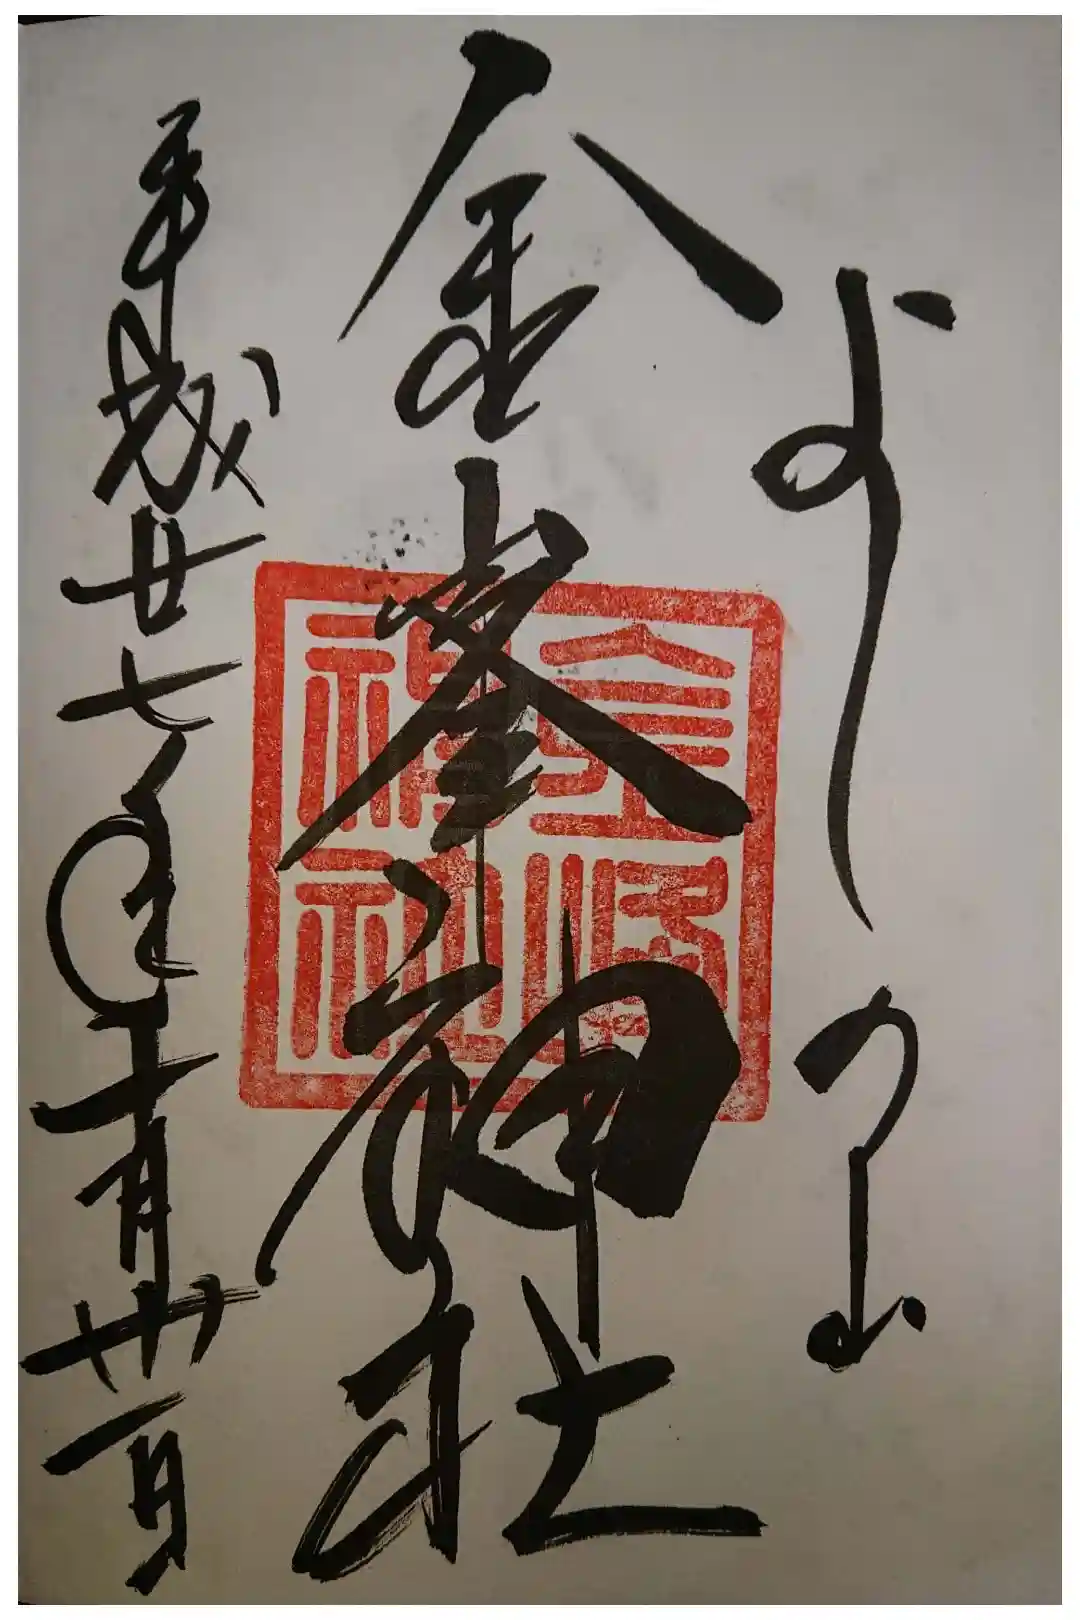 よしの山
金峯神社
平成廿七年十月卅一日
金峰神社